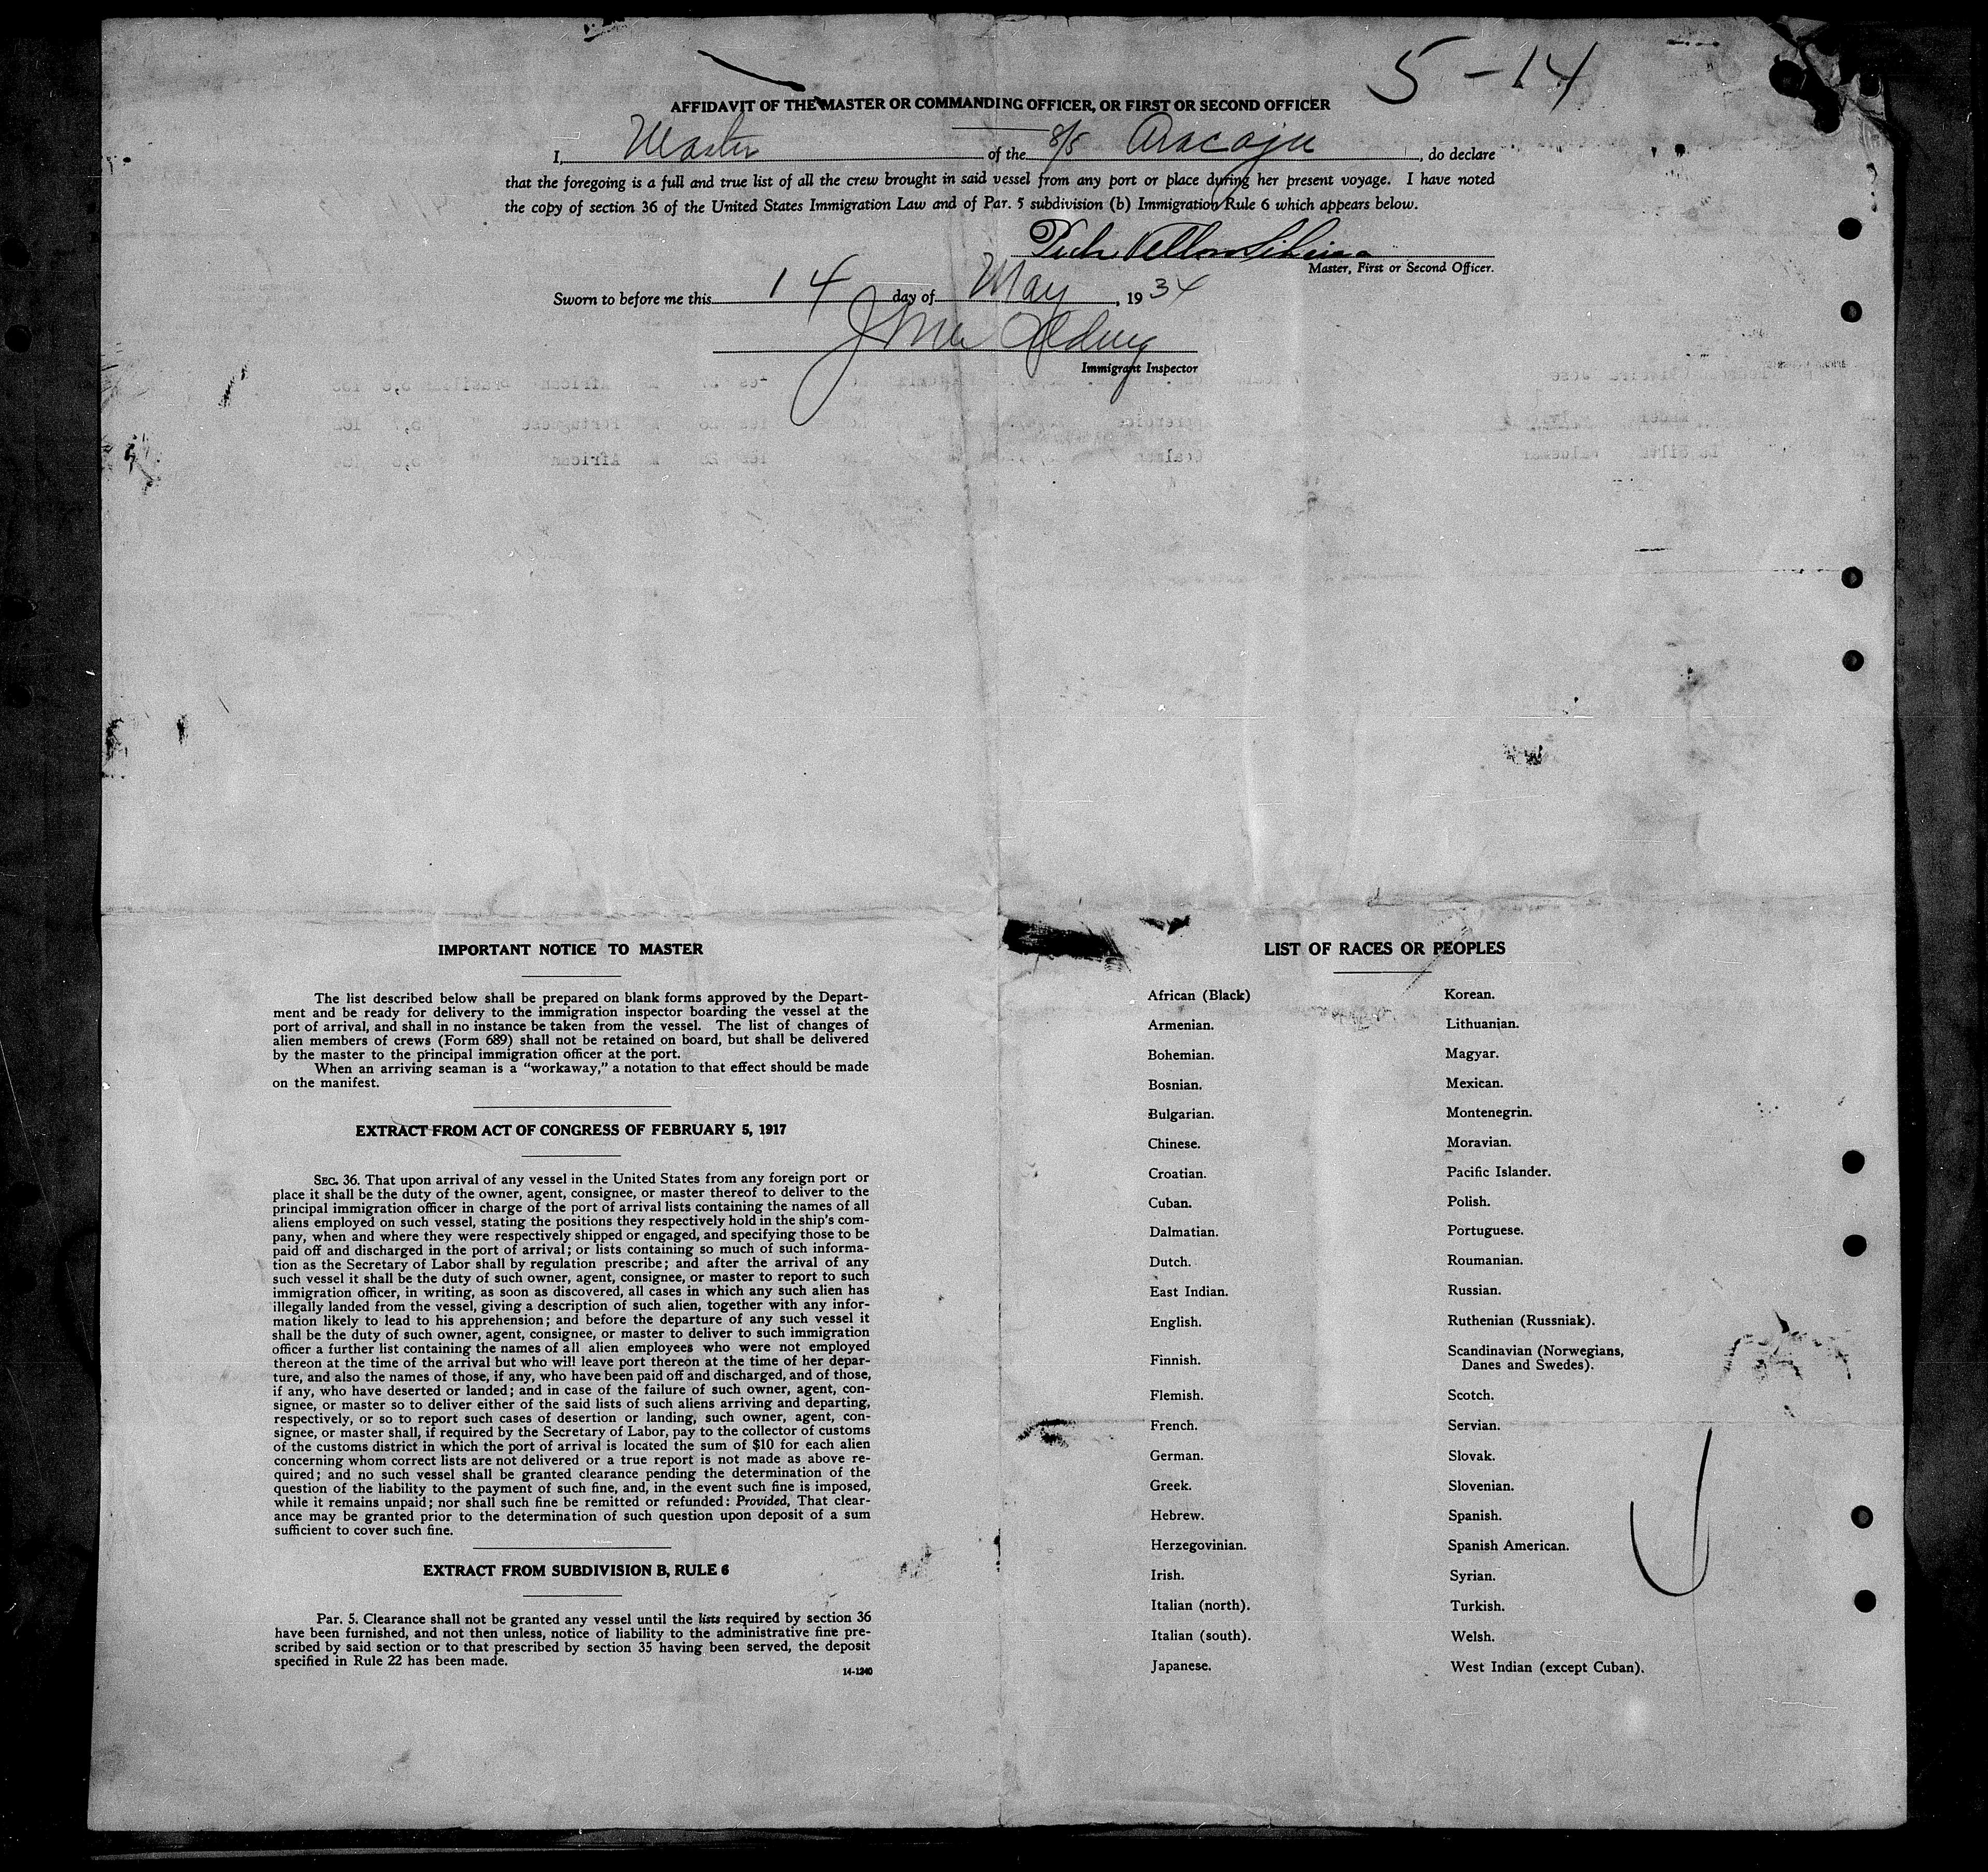 5-14
AFFIDAVIT OF THE MASTER OR COMMANDING OFFICER, OR FIRST OR SECOND OFFICER
I, Master of the S/S Aracaju, do declare
that the foregoing is a full and true list of all the crew brought in said vessel from any port or place during her present voyage. I have noted
the copy of section 36 of the United States Immigration Law and of Par. 5 subdivision (b) Immigration Rule 6 which appears below.
Master, First or Second Officer.
Sworn to before me this 14 day of May, 1934
Immigrant Inspector
IMPORTANT NOTICE TO MASTER
The list described below shall be prepared on blank forms approved by the Depart-
ment and be ready for delivery to the immigration inspector boarding the vessel at the
port of arrival, and shall in no instance be taken from the vessel. The list of changes of
alien members of crews (Form 689) shall not be retained on board, but shall be delivered
by the master to the principal immigration officer at the port.
When an arriving seaman is a “workaway,” a notation to that effect should be made
on the manifest.
EXTRACT FROM ACT OF CONGRESS OF FEBRUARY 5, 1917
SEC. 36. That upon arrival of any vessel in the United States from any foreign port or
place it shall be the duty of the owner, agent, consignee, or master thereof to deliver to the
principal immigration officer in charge of the port of arrival lists containing the names of all
aliens employed on such vessel, stating the positions they respectively hold in the ship's com-
pany, when and where they were respectively shipped or engaged, and specifying those to be
paid off and discharged in the port of arrival; or lists containing so much of such informa-
tion as the Secretary of Labor shall by regulation prescribe; and after the arrival of any
such vessel it shall be the duty of such owner, agent, consignee, or master to report to such
immigration officer, in writing, as soon as discovered, all cases in which any such alien has
illegally landed from the vessel, giving a description of such alien, together with any infor-
mation likely to lead to his apprehension; and before the departure of any such vessel it
shall be the duty of such owner, agent, consignee, or master to deliver to such immigration
officer a further list containing the names of all alien employees who were not employed
thereon at the time of the arrival but who will leave port thereon at the time of her depar-
ture, and also the names of those, if any, who have been paid off and discharged, and of those,
if any, who have deserted or landed; and in case of the failure of such owner, agent, con-
signee, or master so to deliver either of the said lists of such aliens arriving and departing,
respectively, or so to report such cases of desertion or landing, such owner, agent, con-
signee, or master shall, if required by the Secretary of Labor, pay to the collector of customs
of the customs district in which the port of arrival is located the sum of $10 for each alien
concerning whom correct lists are not delivered or a true report is not made as above re-
quired; and no such vessel shall be granted clearance pending the determination of the
question of the liability to the payment of such fine, and, in the event such fine is imposed,
while it remains unpaid; nor shall such fine be remitted or refunded: Provided, That clear-
ance may be granted prior to the determination of such question upon deposit of a sum
sufficient to cover such fine.
EXTRACT FROM SUBDIVISION B, RULE 6
Par. 5. Clearance shall not be granted any vessel until the lists required by section 36
have been furnished, and not then unless, notice of liability to the administrative fine pre-
scribed by said section or to that prescribed by section 35 having been served, the deposit
specified in Rule 22 has been made.
14-1240
LIST OF RACES OR PEOPLES
African (Black)
Armenian.
Bohemian.
Bosnian.
Bulgarian.
Chinese.
Croatian.
Cuban.
Dalmatian.
Dutch.
East Indian.
English.
Finnish.
Flemish.
French.
German.
Greek.
Hebrew.
Herzegovinian.
Irish.
Italian (north).
Italian (south).
Japanese.
Korean.
Lithuanian.
Magyar.
Mexican.
Montenegrin.
Moravian.
Pacific Islander.
Polish.
Portuguese.
Roumanian.
Russian.
Ruthenian (Russniak).
Scandinavian (Norwegians,
Danes and Swedes).
Scotch.
Servian.
Slovak.
Slovenian.
Spanish.
Spanish American.
Syrian.
Turkish.
Welsh.
West Indian (except Cuban).